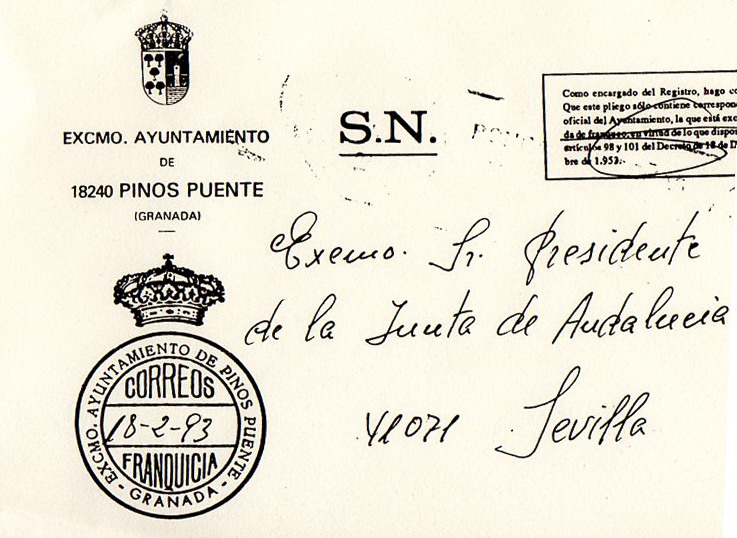 EXCMO. AYUNTAMIENTO
DE
18240 PINOS PUENTE
(GRANADA)
S.N.
Como encargado del Registro, hago
Que este pliego sólo contiene
oficial del Ayuntamiento, la que está
da de franqueo, en virtud de lo que
artículos 98 y 101 del Decreto de 18 de
bre de 1.953.-
Excmo. Sr. Presidente
de la Junta de Andalucia
41071 Sevilla
EXCMO. AYUNTAMIENTO DE PINOS PUENTE
CORREOS
18-2-93
FRANQUICIA
- GRANADA -